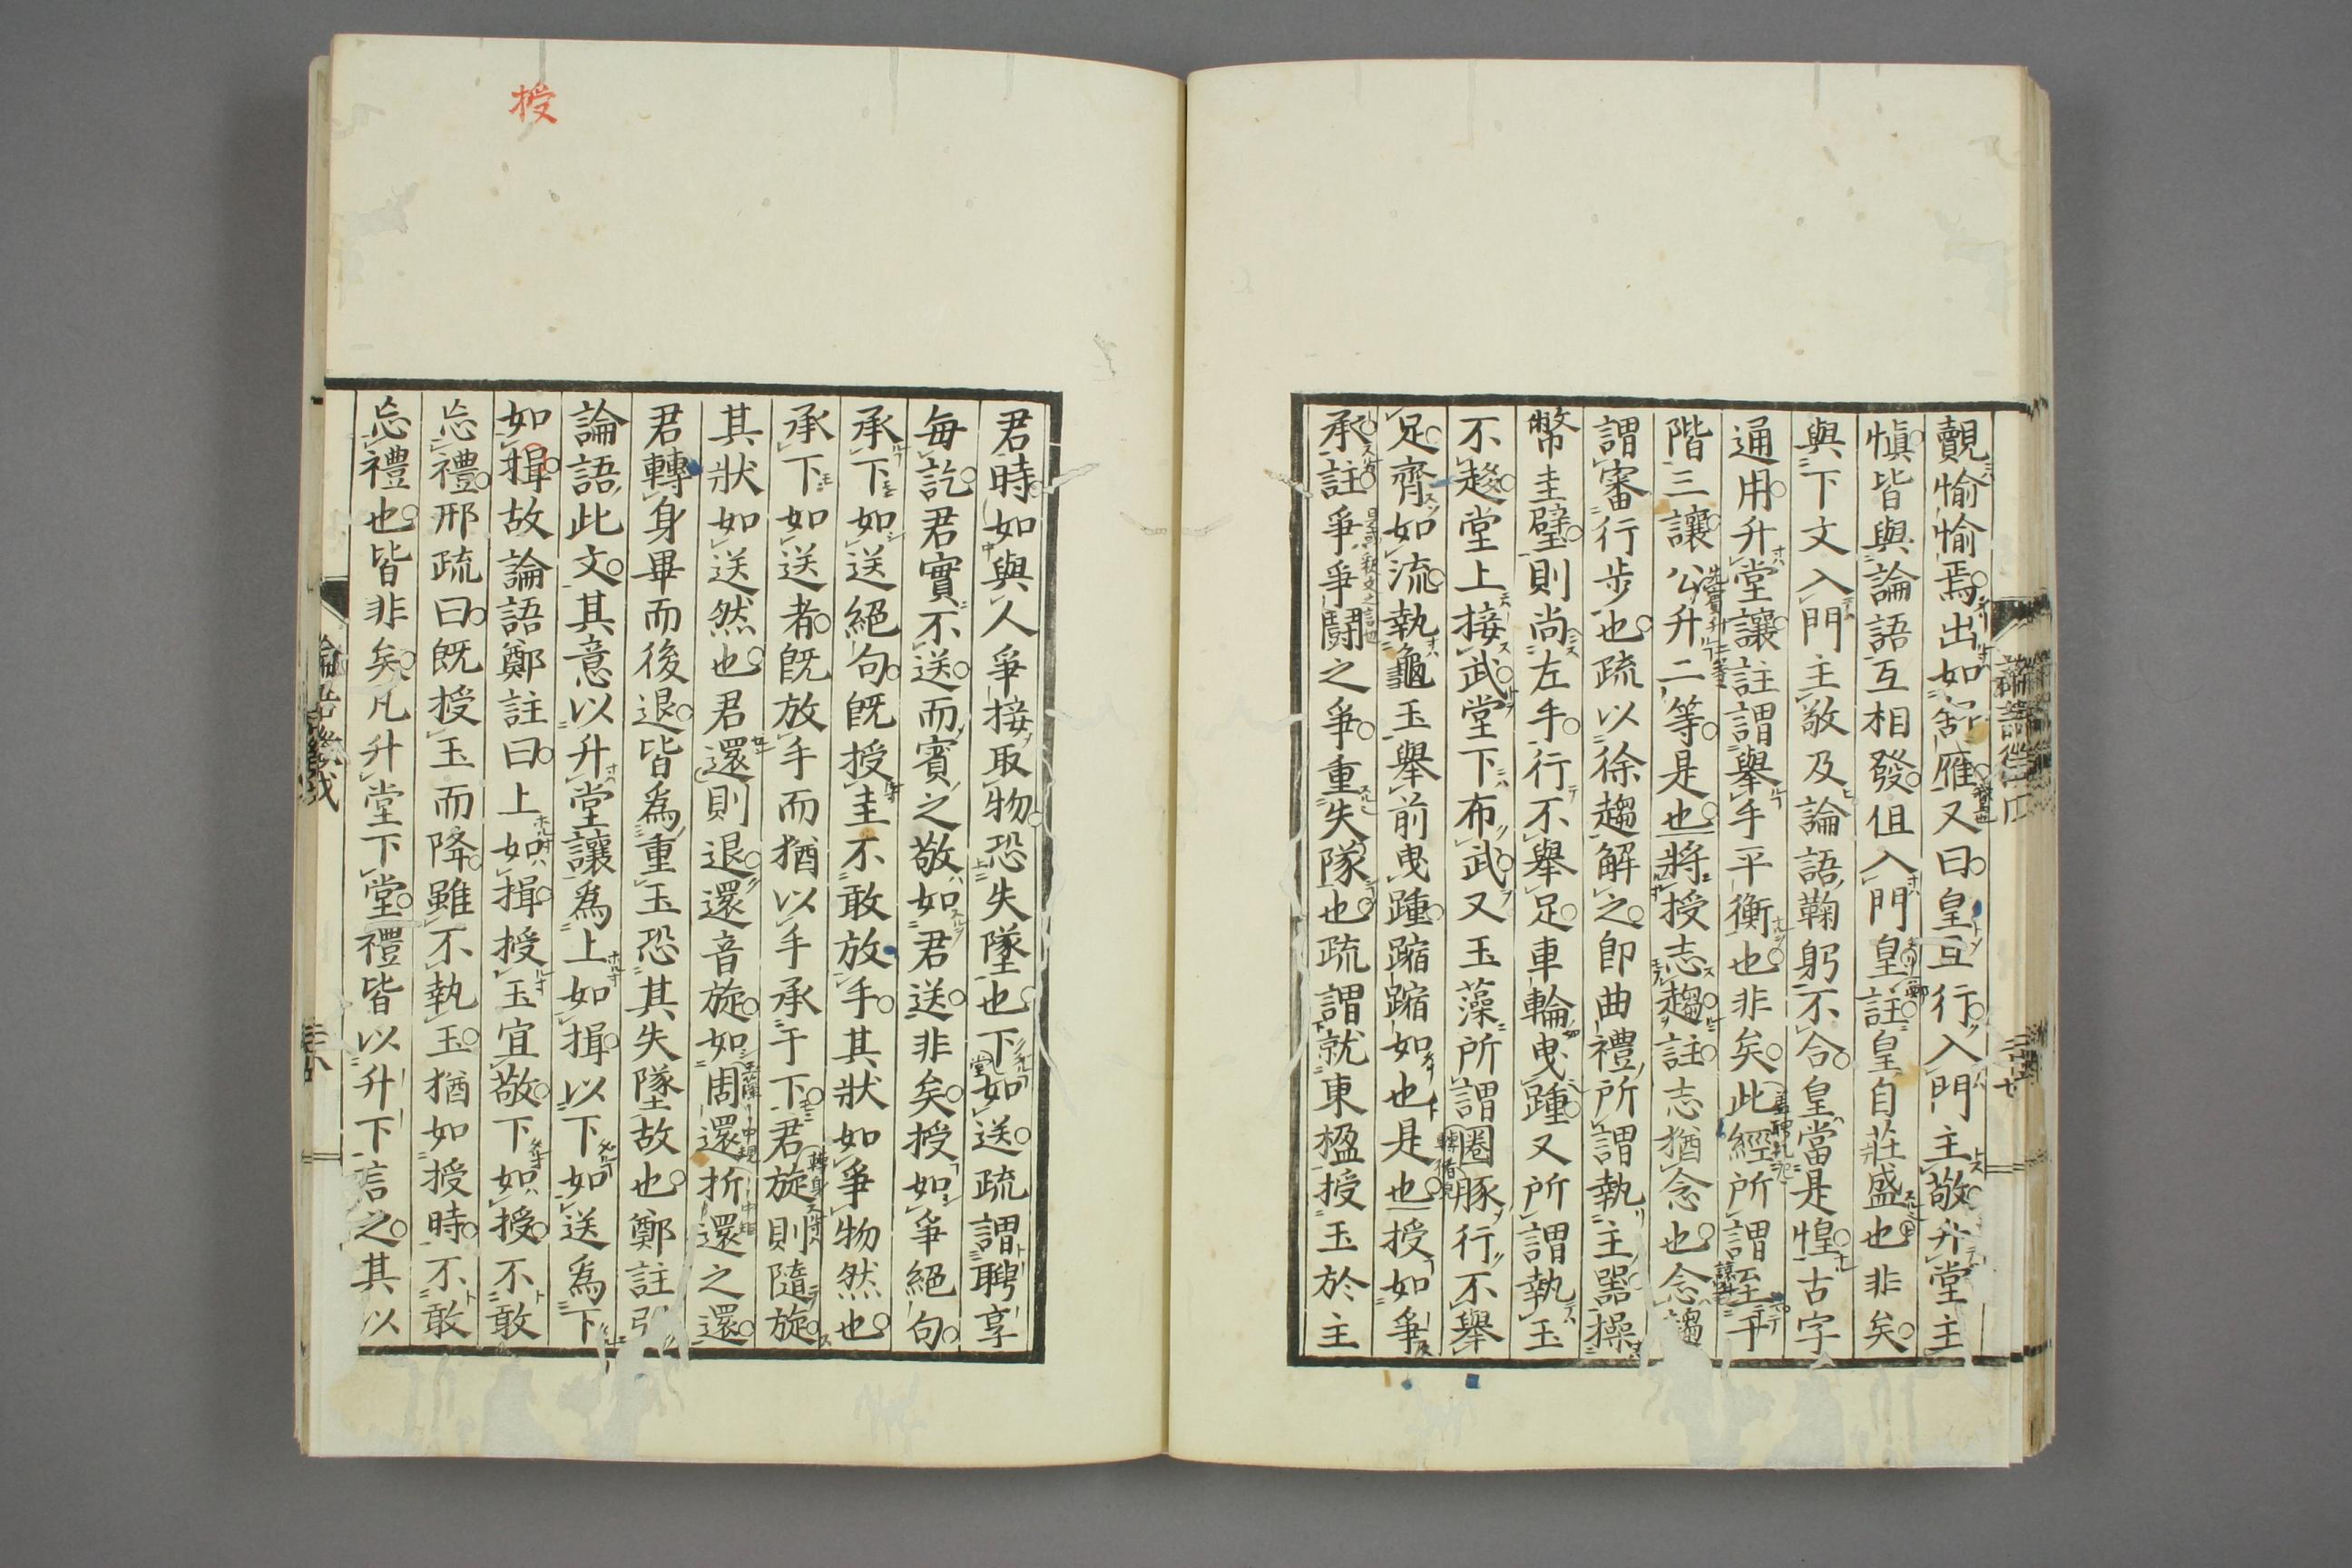 覿愉愉焉出如舒雁又曰皇且行入門主敬升堂主
愼皆與論語互相發但入門皇註皇自莊盛也非矣
與下文入門主敬及論語鞠躬不合皇當是惶古字
通用升堂讓註謂擧手平衡也非矣此經所謂至于
階三讓公升二等是也將授志趨註志猶念也念趨
謂審行步也疏以徐趨解之卽曲禮所謂執主器操
幣圭璧則尚左手行不擧足車輪曳踵又所謂執玉
不趨堂上接武堂下布武又玉藻所謂圈豚行不擧
足齊如流執龜玉擧前曳踵蹜蹜如也是也授如爭
承註爭爭鬪之爭重失隊也疏謂就東楹授玉於主
君時如與人爭接取物恐失墜也下如送疏謂聘享
每訖君實不送而賓之敬如君送非矣授如爭絕句
承下如送絕句旣授圭不敢放手其狀如爭物然也
承下如送者旣放手而猶以手承于下君旋則隨旋
其狀如送然也君還則退還音旋如周還折還之還
君轉身畢而後退皆爲重玉恐其失墜故也鄭註引
論語此文其意以升堂讓爲上如揖以下如送爲下
如揖故論語鄭註曰上如揖授玉宜敬下如授不敢
忘禮邢疏曰旣授玉而降雖不執玉猶如授時不敢
忘禮也皆非矣凡升堂下堂禮皆以升下言之其以
授